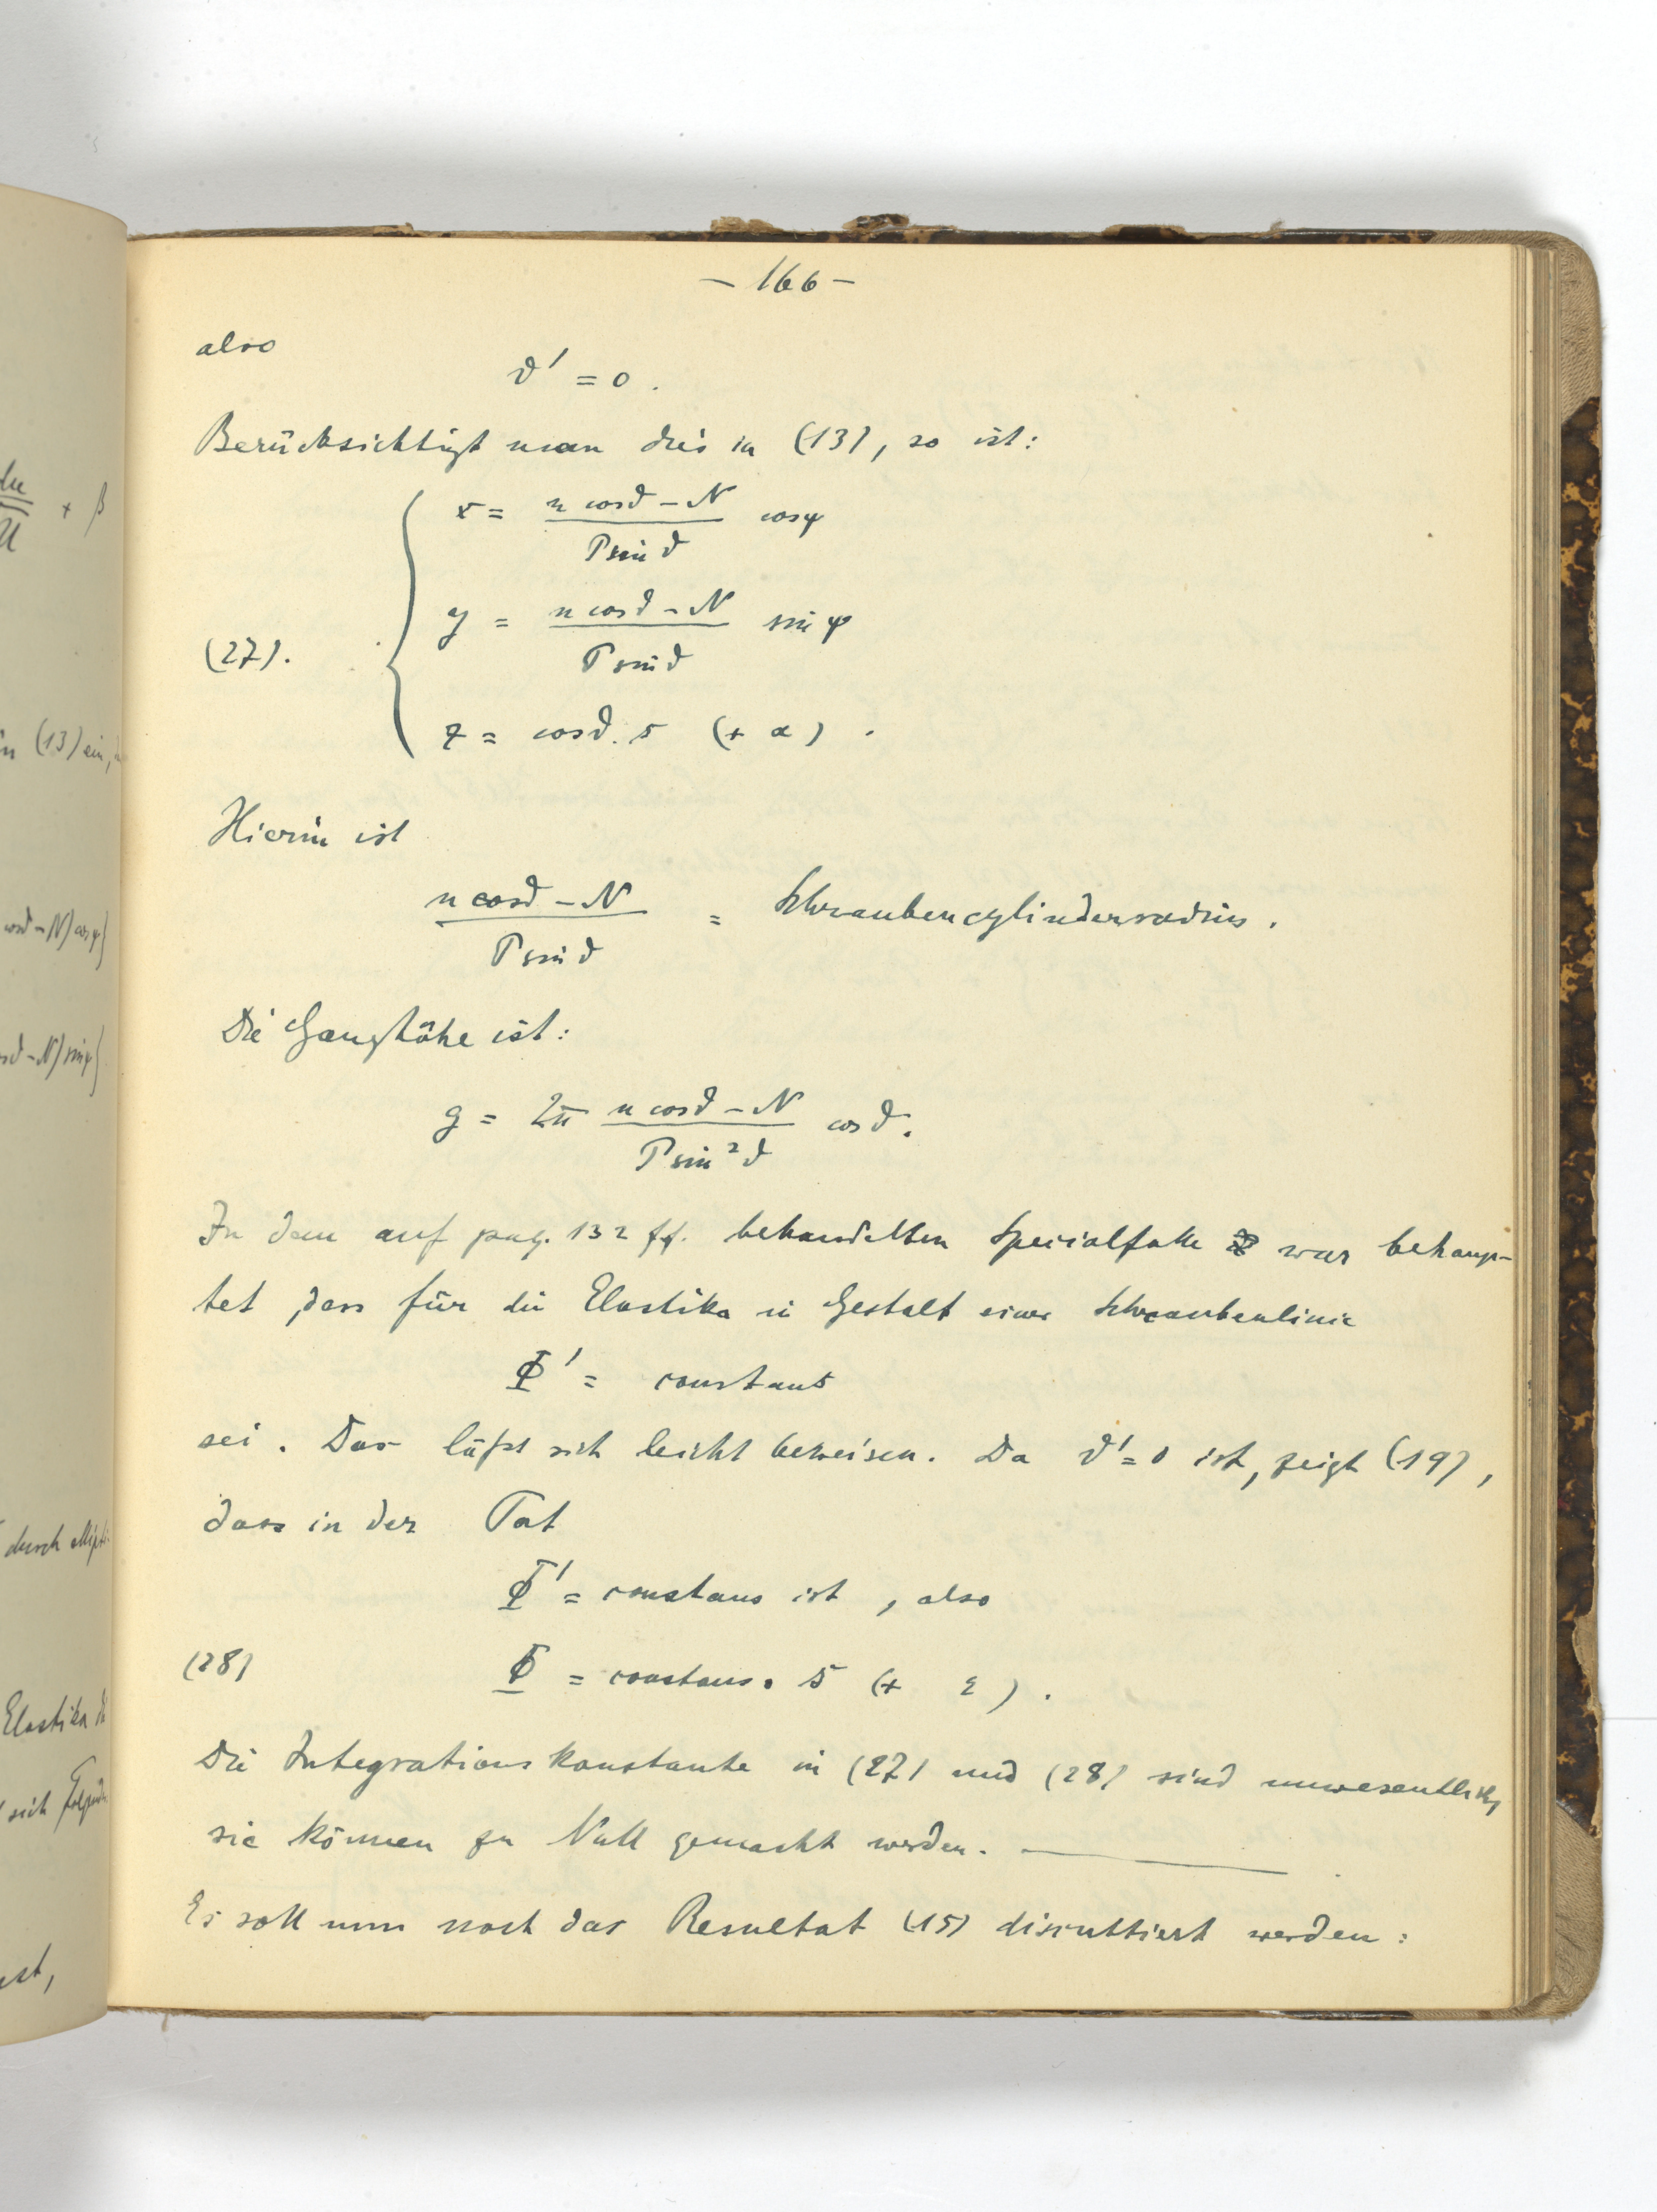 – 166 –
also
ϑ' = 0 .
Berücksichtigt man dies in (13), so ist:
x = (n cosϑ – N) / (P sinϑ) cosψ
y = (n cosϑ – N) / (P sinϑ) sinψ
(27).
z = cosϑ . s (+ α) .
Hierin ist
(n cosϑ – N) / (P sinϑ) = Schraubencylinderradius .
Die Ganghöhe ist:
g = 2π (n cosϑ – N) / (P sin²ϑ) cosϑ.
In dem auf pag. 132 ff. behandelten Specialfalle war behaup-
tet, dass für die Elastika in Gestalt einer Schraubenlinie
Φ' = constans
sei . Das läßt sich leicht beweisen. Da ϑ' = 0 ist, zeigt (19),
dass in der Tat
Φ' = constans ist , also
(28) Φ = constans . s (+ ε) .
Die Integrationskonstante in (27) und (28) sind unwesentlich,
sie können zu Null gemacht werden. —
Es soll nun noch das Resultat (15) discuttiert werden:
du
U
+ β
in (13) ein,
cosϑ – N) cosψ}
cosϑ – N) sinψ}
durch
Elastika
sich
ist,